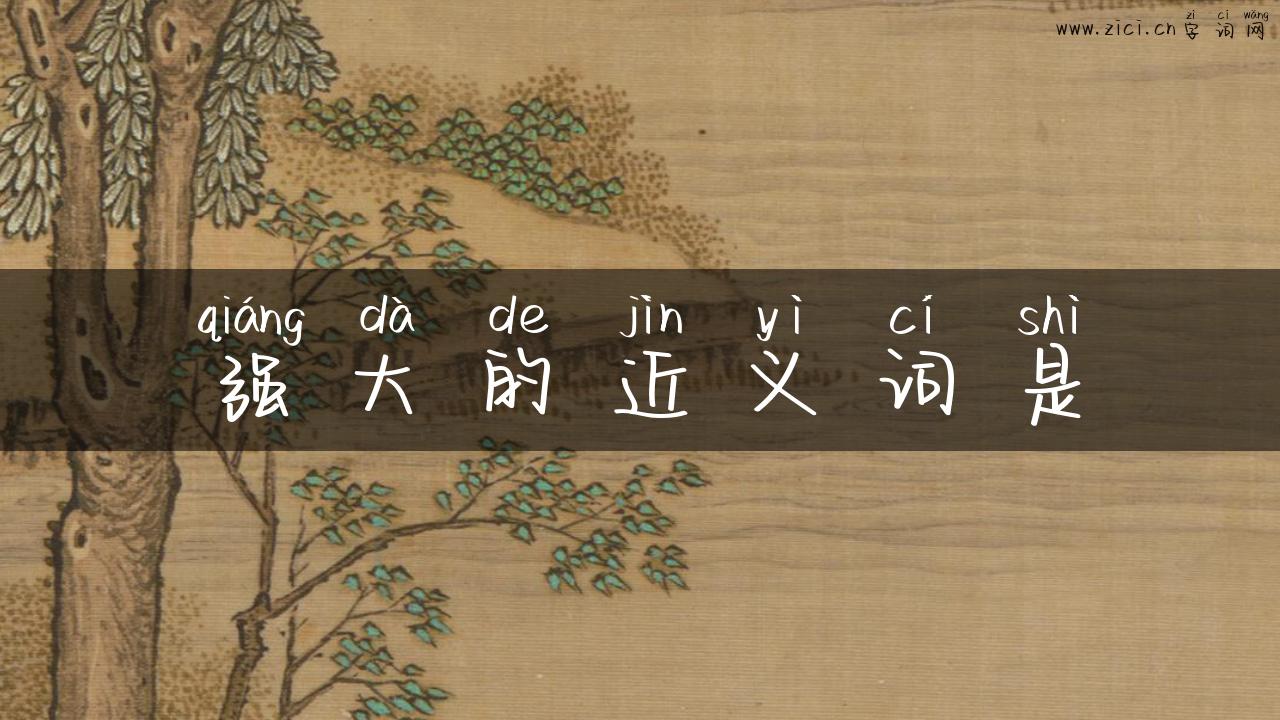 zì cí wǎng
www.zici.cn字词网
qiáng dà de jìn yì cí shì
强大的近义词是